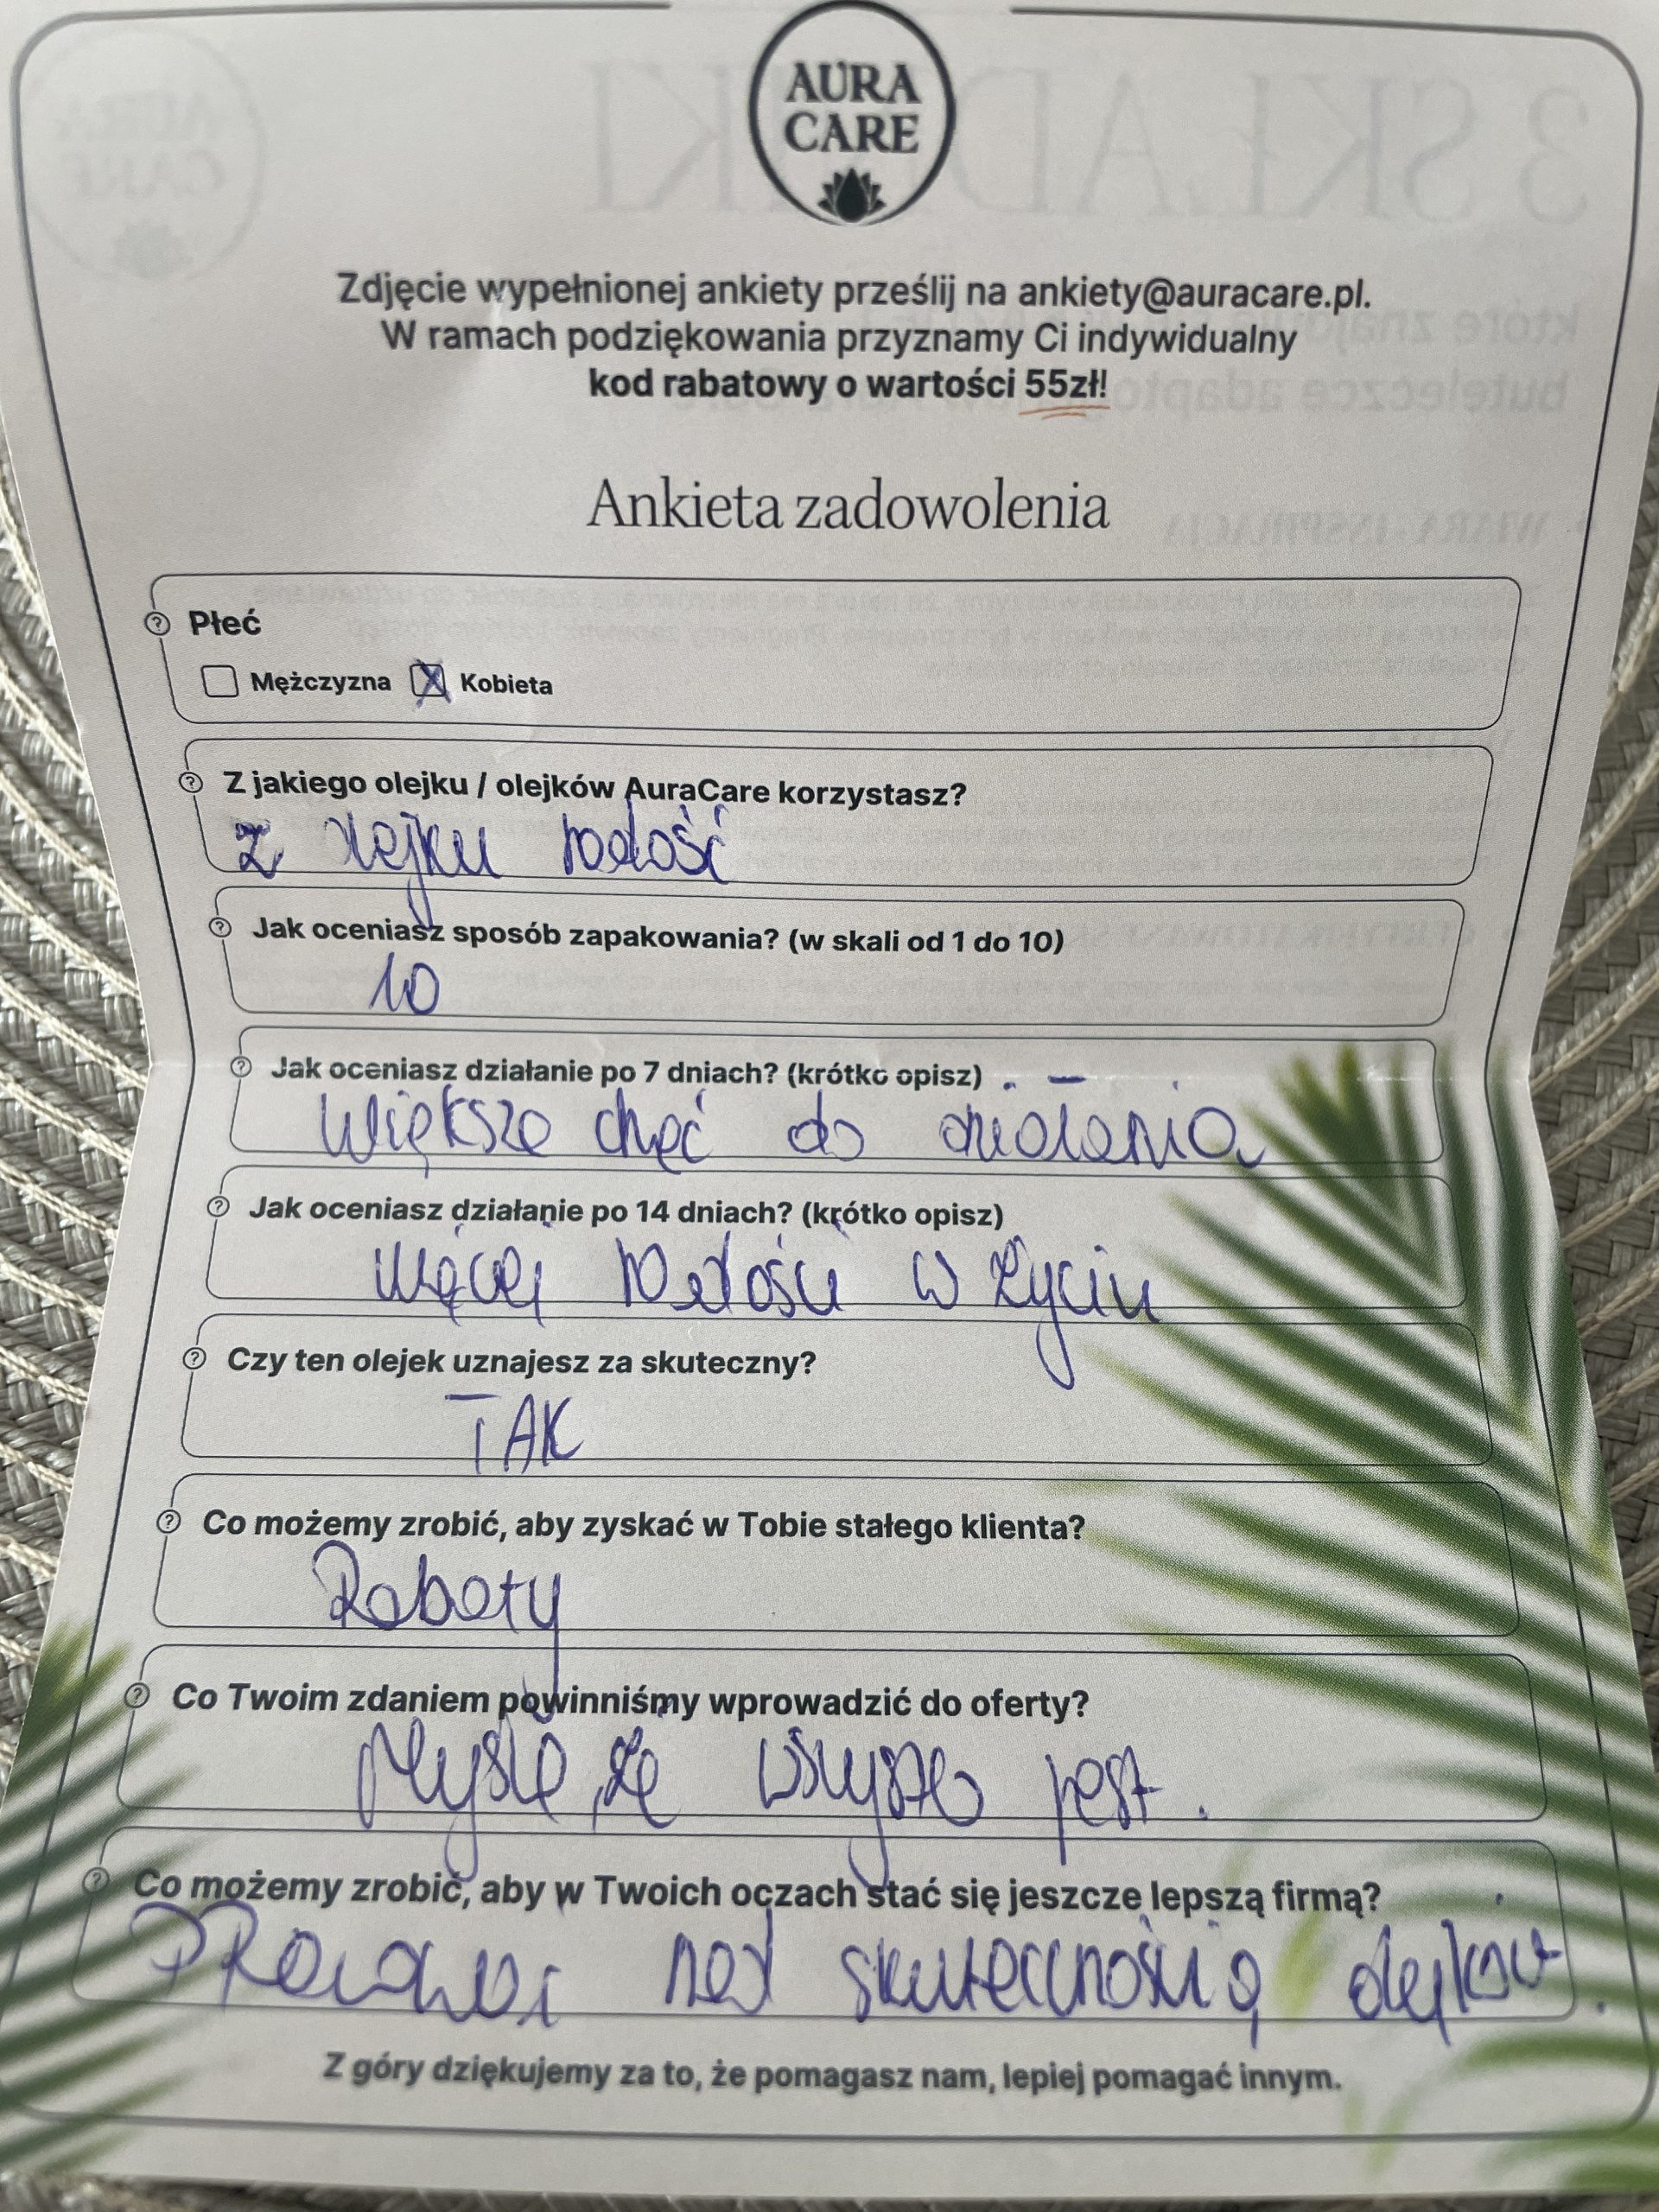 AURA
CARE
Zdjęcie wypełnionej ankiety prześlij na ankiety@auracare.pl.
W ramach podziękowania przyznamy Ci indywidualny
kod rabatowy o wartości 55zł!
Ankieta zadowolenia
Płeć
Mężczyzna X Kobieta
Z jakiego olejku / olejków AuraCare korzystasz?
z olejku radość
Jak oceniasz sposób zapakowania? (w skali od 1 do 10)
10
Jak oceniasz działanie po 7 dniach? (krótko opisz)
Większa chęć do działania
Jak oceniasz działanie po 14 dniach? (krótko opisz)
więcej radości w życiu
Czy ten olejek uznajesz za skuteczny?
TAK
Co możemy zrobić, aby zyskać w Tobie stałego klienta?
Rabaty
Co Twoim zdaniem powinniśmy wprowadzić do oferty?
Myślę, że wszystko jest.
Co możemy zrobić, aby w Twoich oczach stać się jeszcze lepszą firmą?
nad skutecznością olejków.
Z góry dziękujemy za to, że pomagasz nam, lepiej pomagać innym.